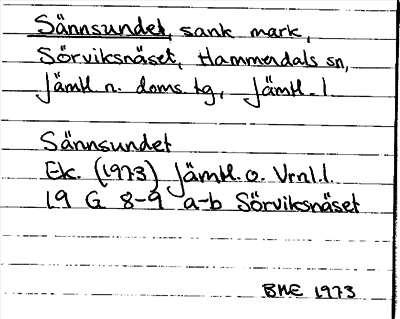 Sännsundet, sank mark,
Sörviksnäset, Hammerdals sn,
Jämtl n. doms. tg, Jämtl. l.
Sännsundet
Ek. (1973) Jämtl. o. Vrnl. l.
19 G 8-9 a-b Sörviksnäset
BME 1973